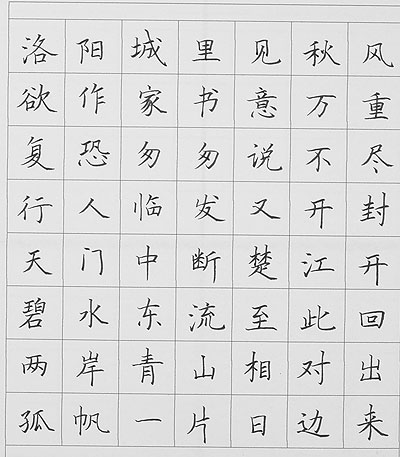 洛阳城里见秋风
欲作家书意万重
复恐匆匆说不尽
行人临发又开封
天门中断楚江开
碧水东流至此回
两岸青山相对出
孤帆一片日边来